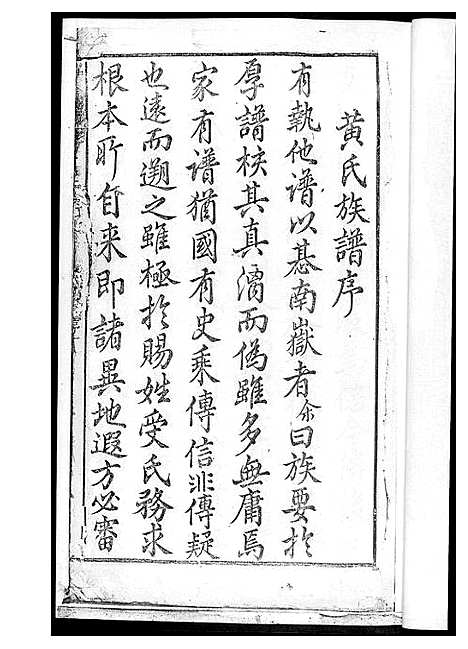 黃氏族譜序
有執他譜以綦南嶽者余曰族要扵
厚譜核其真濟而偽雖多無庸焉
家有谱猶國有史乘傳信非傳疑
也遠而遡之雖極扵賜姓受氏務求
根本所自来即諸異地遐方必審